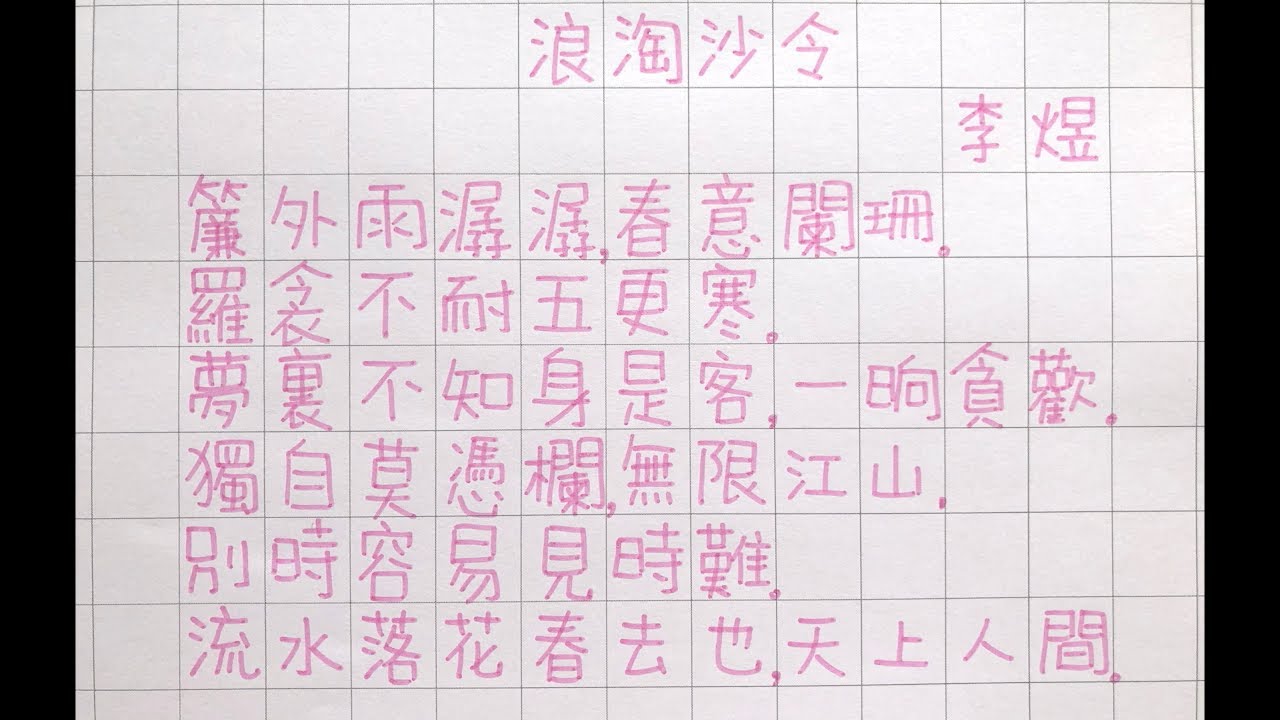 浪淘沙令
李煜
簾外雨潺潺,春意闌珊。
羅衾不耐五更寒。
夢裏不知身是客,一晌貪歡。
獨自莫憑欄,無限江山,
別時容易見時難。
流水落花春去也,天上人間。